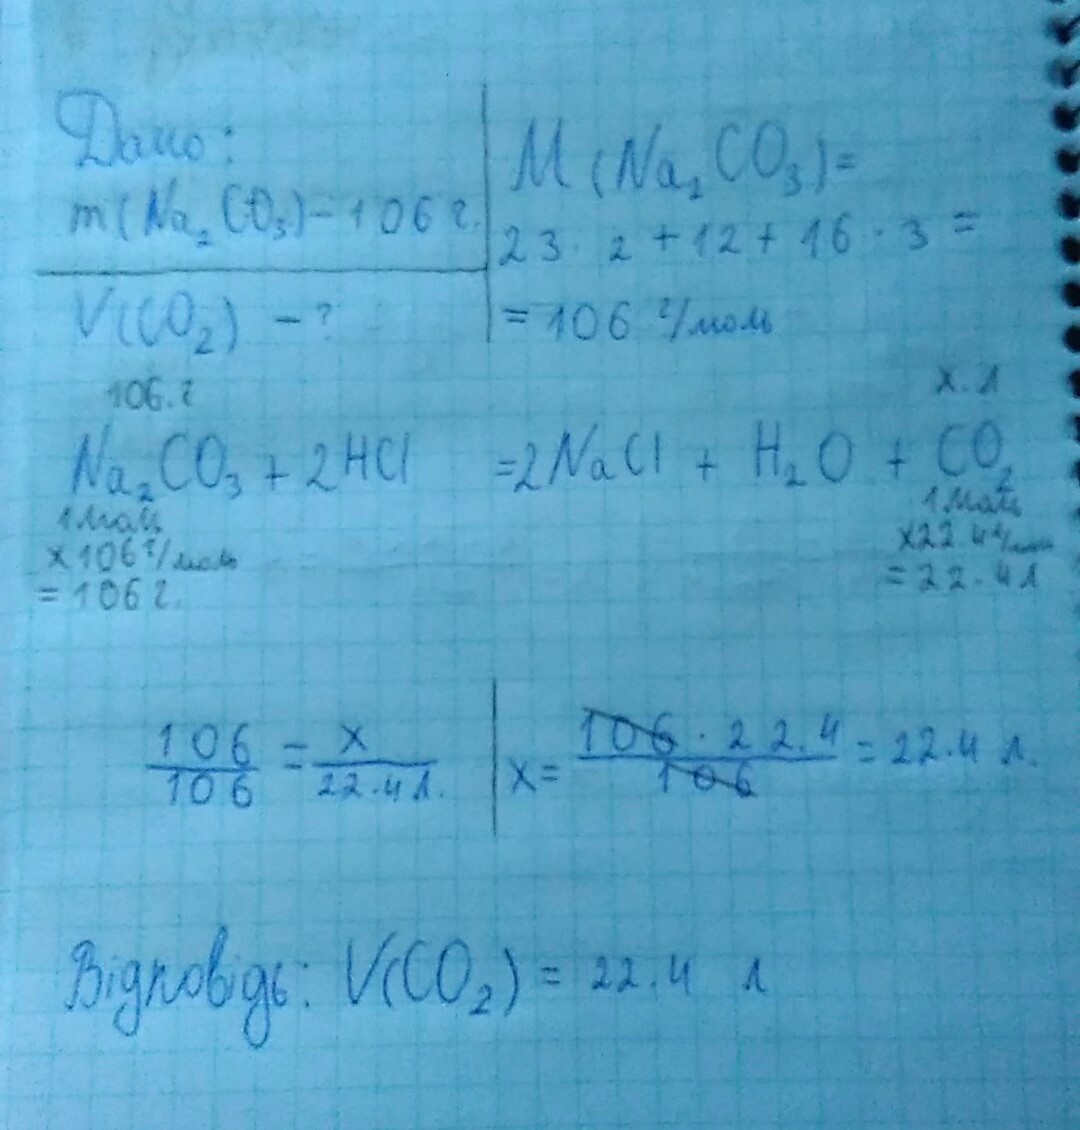 Дано:
m(Na₂CO₃) - 106 г.
V(CO₂) - ?
M(Na₂CO₃)=
23 · 2 + 12 + 16 · 3 =
= 106 г/моль
106. г
x. л
Na₂CO₃ + 2HCl =2NaCl + H₂O + CO₂
1 моль
x 106 г/моль
= 106 г.
1 моль
x22.4 л/моль
= 22.4 л
106/106 = x/22.4 л.
x= 106 · 22.4/106 = 22.4 л.
Відповідь: V(CO₂) = 22.4 л